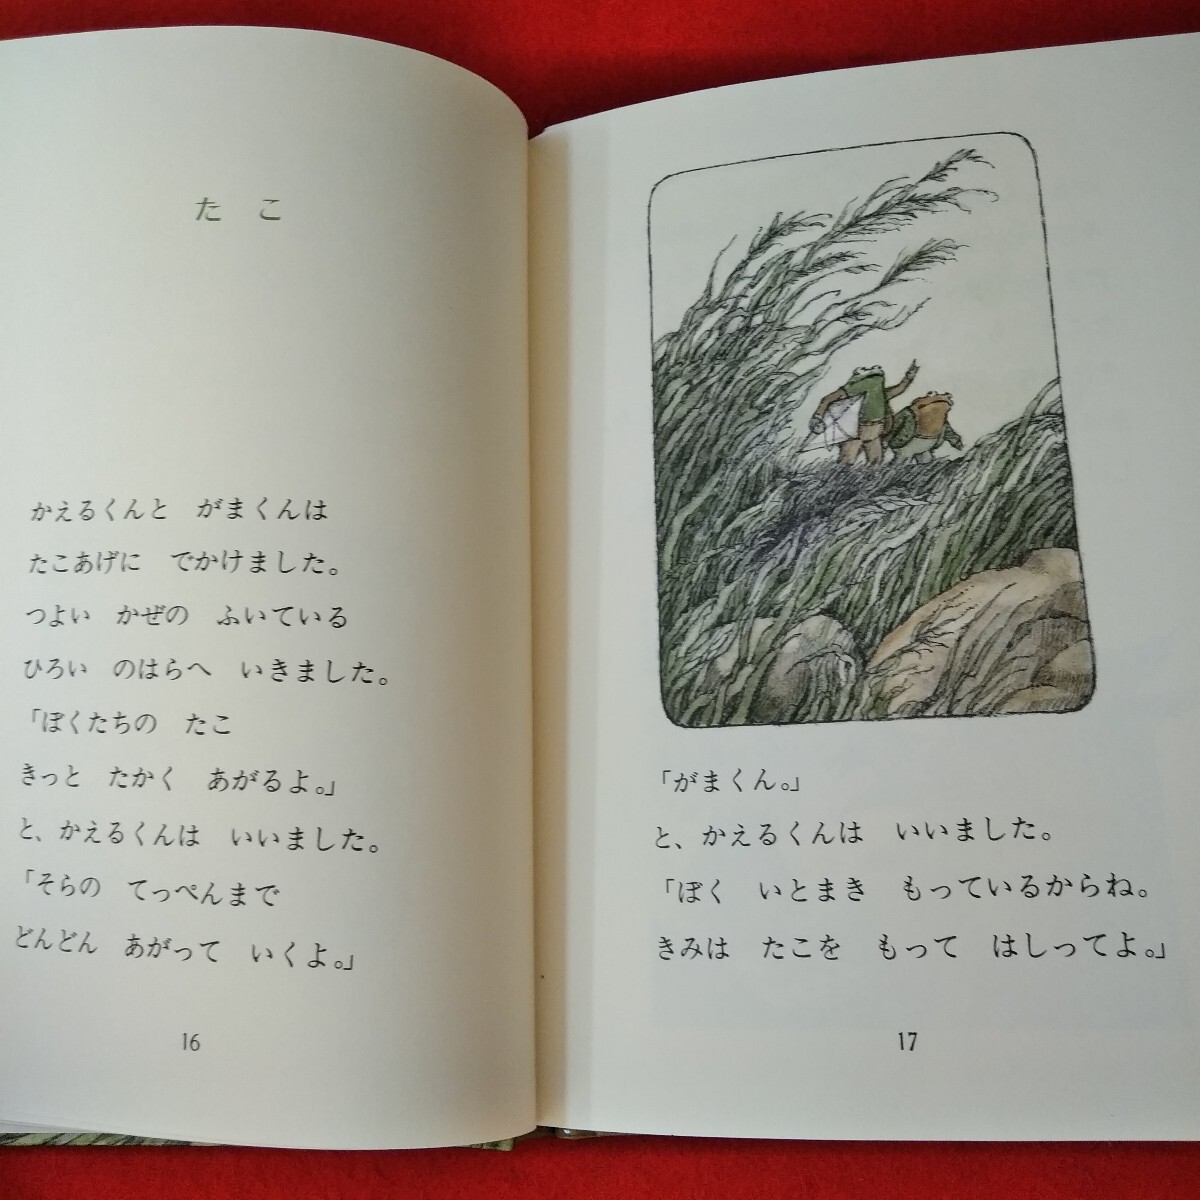 たこ
かえるくんと　がまくんは
たこあげに　でかけました。
つよい　かぜの　ふいている
ひろい　のはらへ　いきました。
「ぼくたちの　たこ
きっと　たかく　あがるよ。」
と、かえるくんは　いいました。
「そらの　てっぺんまで
どんどん　あがって　いくよ。」
16
「がまくん。」
と、かえるくんは　いいました。
「ぼく　いとまき　もっているからね。
きみは　たこを　もって　はしってよ。」
17